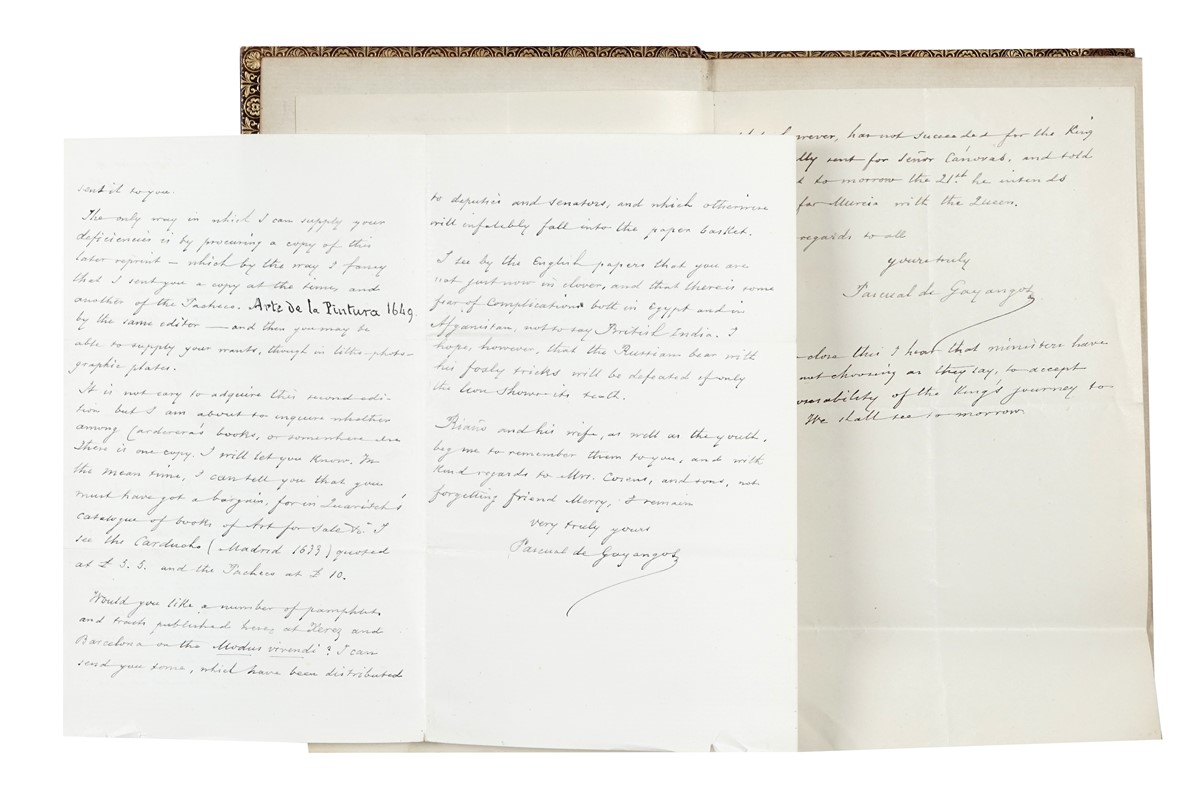 sent it to you.
The only way in which I can supply your
deficiencies is by procuring a copy of this
later reprint — which by the way I fancy
that I sent you a copy at the time, and
another of the Pacheco. Arte de la Pintura 1649.
by the same editor — and then you may be
able to supply your wants, though in litho-photo-
graphic plates.
It is not easy to adquire this second edi-
tion but I am about to inquire whether
among Carderera's books, or somewhere else
there is one copy. I will let you know. In
the mean time, I can tell you that you
must have got a bargain, for in Quaritch's
catalogue of books of Art for Sale I
see the Carducho (Madrid 1633) quoted
at £ 3. 3. and the Pacheco at £ 10.
Would you like a number of pamphlets
and tracts published here, at Xerez and
Barcelona on the Modus vivendi? I can
send you some, which have been distributed
to deputies and senators, and which otherwise
will infalebly fall into the paper basket.
I see by the English papers that you are
not just now in clover, and that there is some
fear of Complications both in Egypt and in
Afganistan, not to say British India. I
hope, however, that the Russian bear with
his tricks will be defeated if only
the lion Shows its teeth.
Riaño and his wife, as well as the youth,
beg me to remember them to you, and with
kind regards to Mrs. Cosens, and sons, not
forgetting friend Merry, I remain
very truly yours
Pascual de Gayangos
however, has not succeeded for the King
sent for Señor Cánovas, and told
to morrow the 21st he intends
for Murcia with the Queen.
regards to all
yours truly
Pascual de Gayangos
close this I hear that ministers have
not choosing as they say, to accept
of the King's journey to
We shall see to morrow.